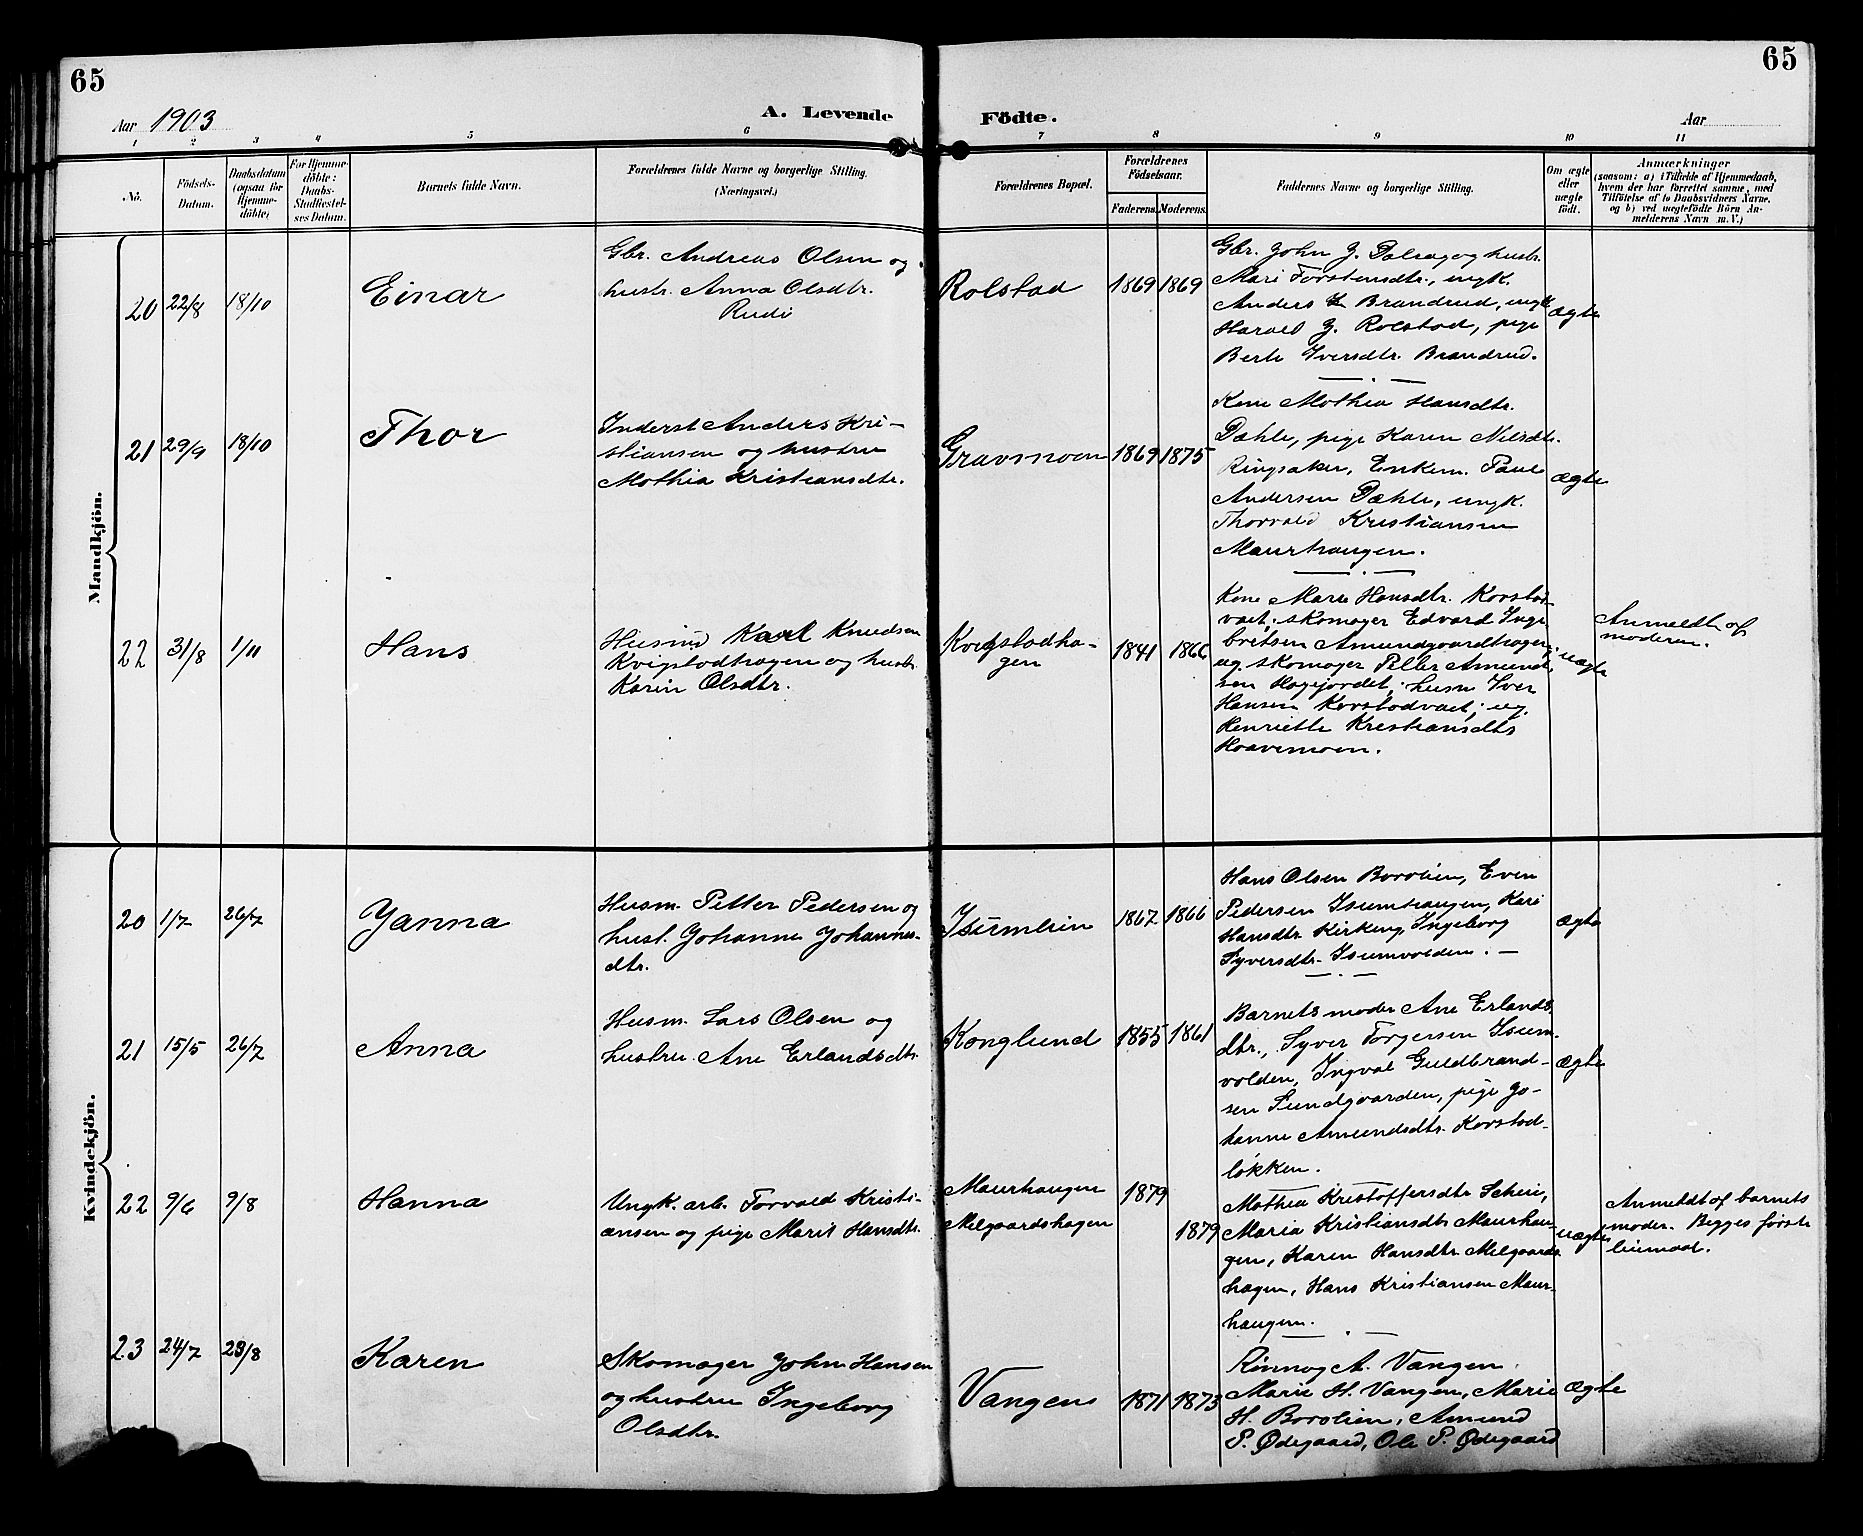 65
65
Aar 1903
A. Levende
Födte.
Aar
1 2 3 4 5 6 7 8 9 10 11
No.
Födsels-
Datum.
Daabsdatum
(ogsaa for
Hjemme-
döbte)
For Hjemme-
döbte:
Daabs-
Stadfæstel-
ses Datum.
Barnets fulde Navn.
Forældrenes fulde Navne og borgerlige Stilling.
(Næringsvei.)
Forældrenes Bopæl.
Forældrenes
Födselsaar.
Faderens. Moderens.
Faddernes Navne og borgerlige Stilling.
Om ægte
eller
uægte
födt.
Anmærkninger
(saasom: a) i Tilfælde af Hjemmedaab,
hvem der har forrettet samme, med
Tilföielse af to Daabsvidners Navne,
og b) ved uægtefödte Börn An-
melderens Navn m. V.)
Mandkjön.
20 22/8 18/10
Einar
Gbr. Andreas Olsen og
hustr. Anna Olsdtr.
Rudi
Rolstad
1869 1869
Gbr. John J. Dalsag og hustr.
Mari Torstensdtr., ungk.
Anders Brandrud, ungk
Harald J. Rolstad, pige
Berte Iversdtr. Brandrud.
ægte
21 29/9 18/10
Thor
Inderst Anders Kri-
stiansen og hustru
Mathia Kristiansdtr.
Gravmoen
1869 1875
Kone Mathia Hansdtr.
Dæhle, pige Karen Nilsdtr.
Ringsaker, Enkem. Paul
Andersen Dæhle, ungk.
Thorvald Kristiansen
Maurhaugen.
ægte
22 31/8 1/11
Hans
Husmd Karl Knudsen
Kvigstadhagen og hustr.
Karin Olsdtr.
Kvigstadha-
gen
1841 1866
Kone Mari Hansdtr. Korstad-
vaet, skomager Edvard Inge
britsen Amundgaardhagen;
ug. skomager Petter Amund-
sen Hagejordet; husm Iver
Hansen Korstadvaet; ug.
Henriette Kristiansdtr
Haavemoen.
uægte
Anmeldt af
moderen.
Kvindekjön.
20 1/7 26/7
Janna
Husm. Petter Pedersen og
hust. Johanne Johannes-
dtr.
Isumlien
1867 1866
Hans Olsen Borolien, Even
Pedersen Isumhaugen, Kari
Hansdtr Kirkeng, Ingeborg
Syversdtr. Isumvolden. —
ægte
21 15/5 26/7
Anna
Husm. Lars Olsen og
hustru Ane Erlandsdtr.
Konglund
1855 1861
Barnets moder Ane Erlands
dtr., Syver Torgersen Isum-
volden, Ingval Guldbrand-
sen Sundgaarden, pige Jo-
hanne Amundsdtr. Korstad-
løkken.
ægte
22 9/6 9/8
Hanna
Ungk. arb. Torvald Kristi-
ansen og pige Marit Hansdtr.
Maurhaugen
Melgaardshagen
1879
1879
Mathea Kristoffersdtr Scheie,
Maria Kristiansdtr Maurhau-
gen, Karen Hansdtr Melgaards
hagen, Hans Kristiansen Maur-
haugen.
uægte
Anmeldt af barnets
moder. Begges første
leiemaal.
23 24/7 23/8
Karen
Skomager John Hansen
og hustru Ingeborg
Olsdtr.
Vangen
1871 1873
Rønnog A. Vangen,
Marie H. Vangen, Marie
H. Borolien, Amund
P. Ødegaard, Ole P. Ødegaard
ægte